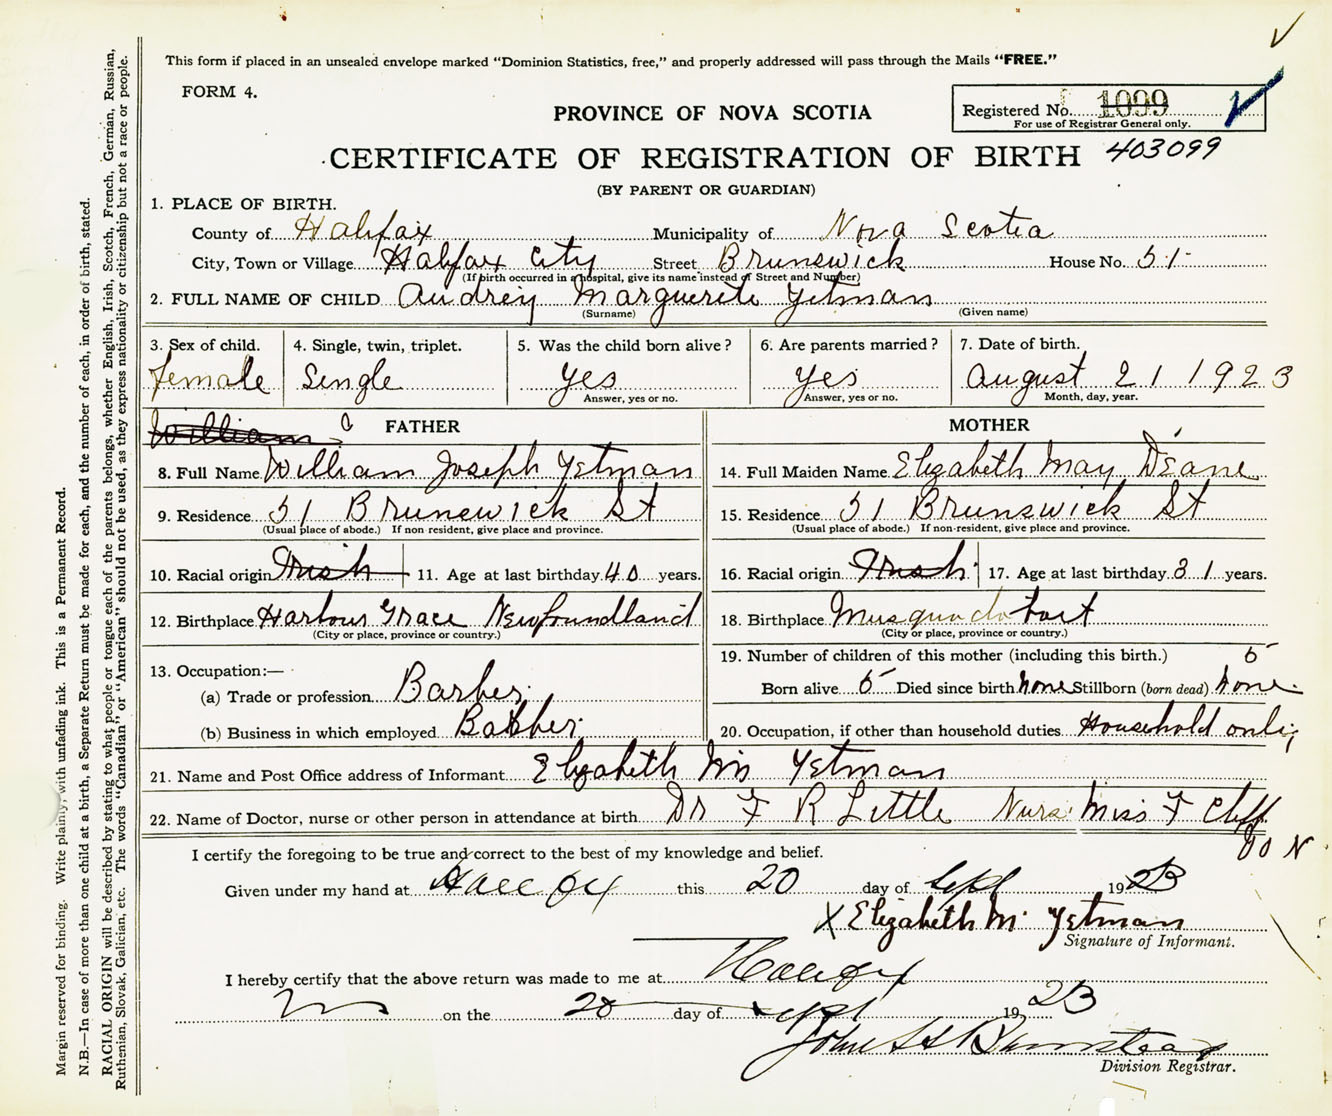 This form if placed in an unsealed envelope marked "Dominion Statistics, free," and properly addressed will pass through the Mails "FREE."
FORM 4.
PROVINCE OF NOVA SCOTIA
Registered No. 1099
For use of Registrar General only.
CERTIFICATE OF REGISTRATION OF BIRTH 403099
(BY PARENT OR GUARDIAN)
1. PLACE OF BIRTH.
County of Halifax Municipality of Nova Scotia
City, Town or Village Halifax City Street Brunswick House No. 51
(If birth occurred in a hospital, give its name instead of Street and Number)
2. FULL NAME OF CHILD Audrey Marguerite Yetman
(Surname) (Given name)
3. Sex of child. 4. Single, twin, triplet. 5. Was the child born alive? 6. Are parents married? 7. Date of birth.
female Single Yes Yes August 21 1923
Answer, yes or no. Answer, yes or no. Month, day, year.
William FATHER MOTHER
8. Full Name William Joseph Yetman 14. Full Maiden Name Elizabeth May Deane
9. Residence 51 Brunswick St 15. Residence 51 Brunswick St
(Usual place of abode.) If non-resident, give place and province. (Usual place of abode.) If non-resident, give place and province.
10. Racial origin Irish 11. Age at last birthday 40 years. 16. Racial origin Irish 17. Age at last birthday 31 years.
12. Birthplace Harbour Grace Newfoundland 18. Birthplace Musquodoboit
(City or place, province or country.) (City or place, province or country.)
13. Occupation:— 19. Number of children of this mother (including this birth.) 5
(a) Trade or profession Barber Born alive 5 Died since birth none Stillborn (born dead) none
(b) Business in which employed Barber 20. Occupation, if other than household duties Household only
21. Name and Post Office address of Informant Elizabeth M Yetman
22. Name of Doctor, nurse or other person in attendance at birth Dr F R Little Nurse Miss F Cliff
I certify the foregoing to be true and correct to the best of my knowledge and belief.
Given under my hand at Halifax this 20 day of Sept 1923
X Elizabeth M. Yetman
Signature of Informant.
I hereby certify that the above return was made to me at Halifax
on the 20 day of Sept 1923
John
Division Registrar.
Margin reserved for binding. Write plainly, with unfading ink. This is a Permanent Record.
N.B.—In case of more than one child at a birth, a Separate Return must be made for each, and the number of each, in order of birth, stated.
RACIAL ORIGIN will be described by stating to what people or tongue each of the parents belongs, whether English, Irish, Scotch, French, German, Russian,
Ruthenian, Slovak, Galician, etc. The words "Canadian" or "American" should not be used, as they express nationality or citizenship but not a race or people.